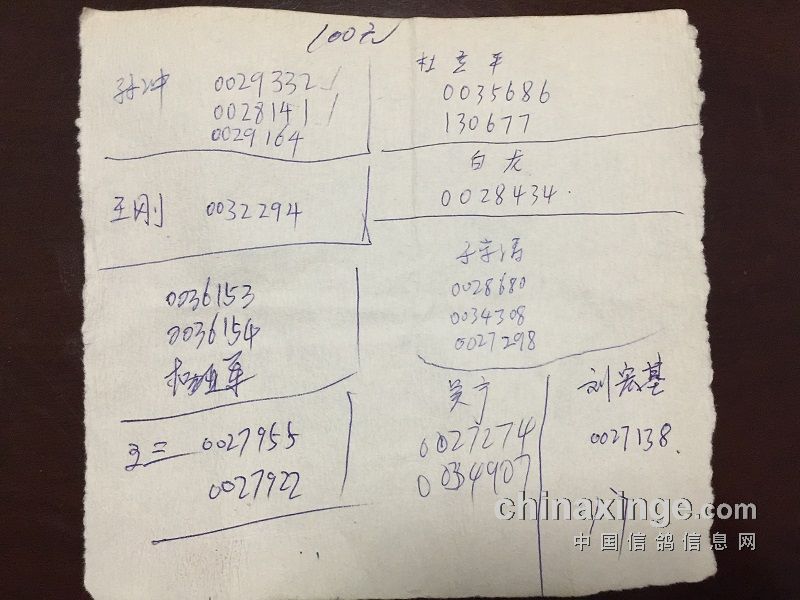 100元
孙冲 0029332
0028141
0029164
杜立平
0035686
130677
王刚 0032294
白龙
0028434.
0036153
0036154
0028680
0034308
0027298
王二 0027955
0027922
吴宁
0027274
0034907
刘宏基
0027138.
chinaxinge.com
中国信鸽信息网